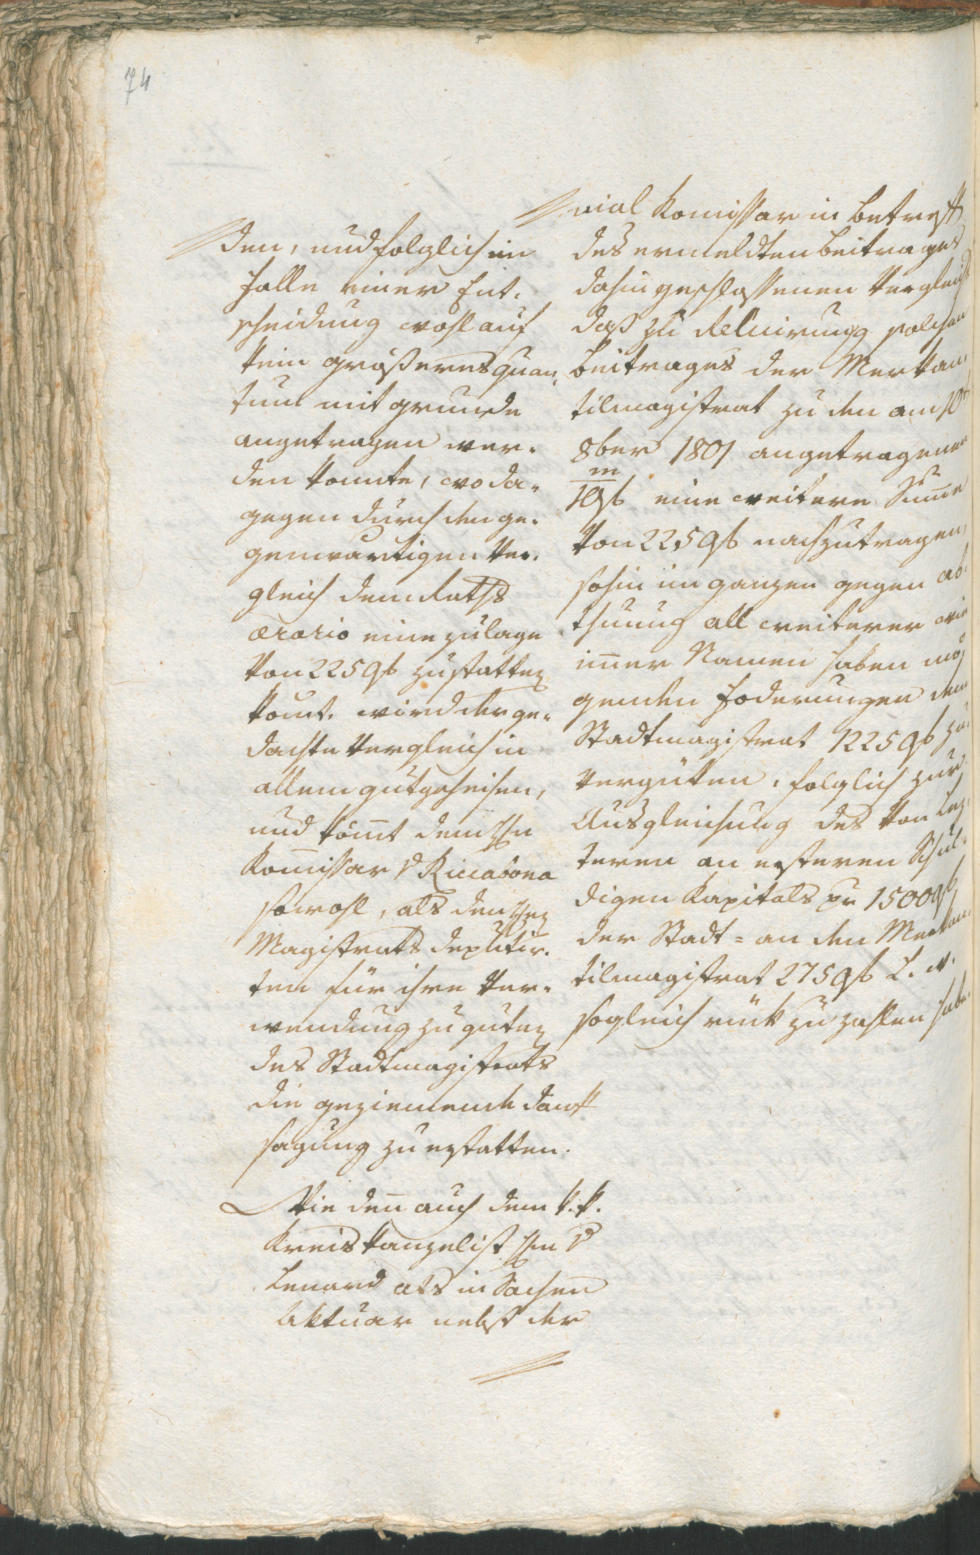 74
den, und folglich im
Falle einer Ent-
scheidung wohl auf
kein größeres quan-
tum mit grunde
angetragen wer-
den konnte, wo da-
gegen durch den ge-
genwärtigen Ver-
gleich dem Raths
ærario eine zulage
von 225 fl zustatten
komt. wird der ge-
dachte Vergleich in
allem gutgeheisen,
und kömt dem Hn
Komissar v Riccabona
sowohl, als den Hen
Magistrats deputir-
ten für ihre Ver-
wendung zu guten
des Stadtmagistrats
die geziemende dank
sagung zu erstatten.
Wie den auch dem k. k.
Kreiskanzelist Hn v
Lenard als in Sachen
Aktuar nebst der
vial Komissar in betreff
des ermeldten beitrages
dahin geschlossenen Vergleich
daß zu Reluirung solchen
beitrages der Merkan-
tilmagistrat zu den am 10
8ber 1801 angetragenen
m
1 fl eine weitere Sume
von 225 fl nachzutragen
sohin im ganzen gegen ab-
thuung all weiterer wie
imer Namen haben mö-
genden foderungen dem
Stadtmagistrat 1225 fl zu
vergüten, folglich zur
Ausgleichung des von lez-
teren an ersteren schul-
digen Kapitals pr 1500 fl
der Stadt- an den Merkan-
tilmagistrat 275 fl L. W.
sogleich rük zu zahlen habe